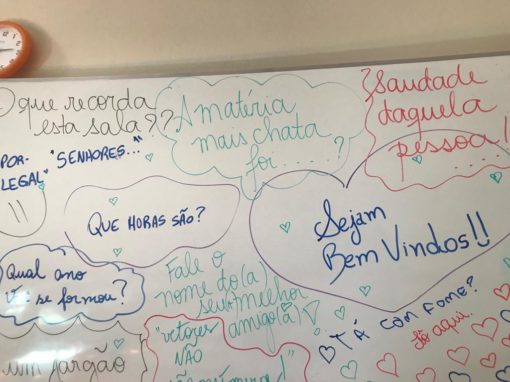 O que recorda
esta sala??
POR- "SENHORES..."
LEGAL"
A matéria
mais chata
foi .....?
Saudade
daquela
pessoa!
QUE HORAS SÃO?
Sejam
Bem Vindos!!
Qual ano
se formou?
Fale o
nome do(a)
seu melhor
amigo(a)
"vetores
NÃO
TÁ COM FOME?
Só aqui.
um jargão